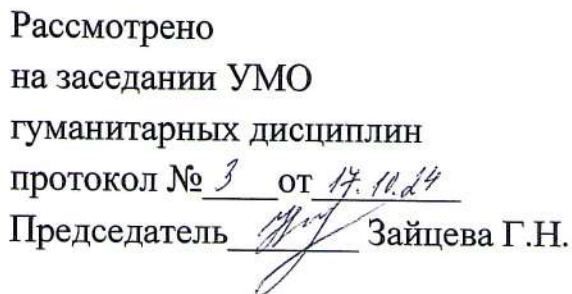 Рассмотрено
на заседании УМО
гуманитарных дисциплин
протокол № 3 от 17.10.24
Председатель Зайцева Г.Н.